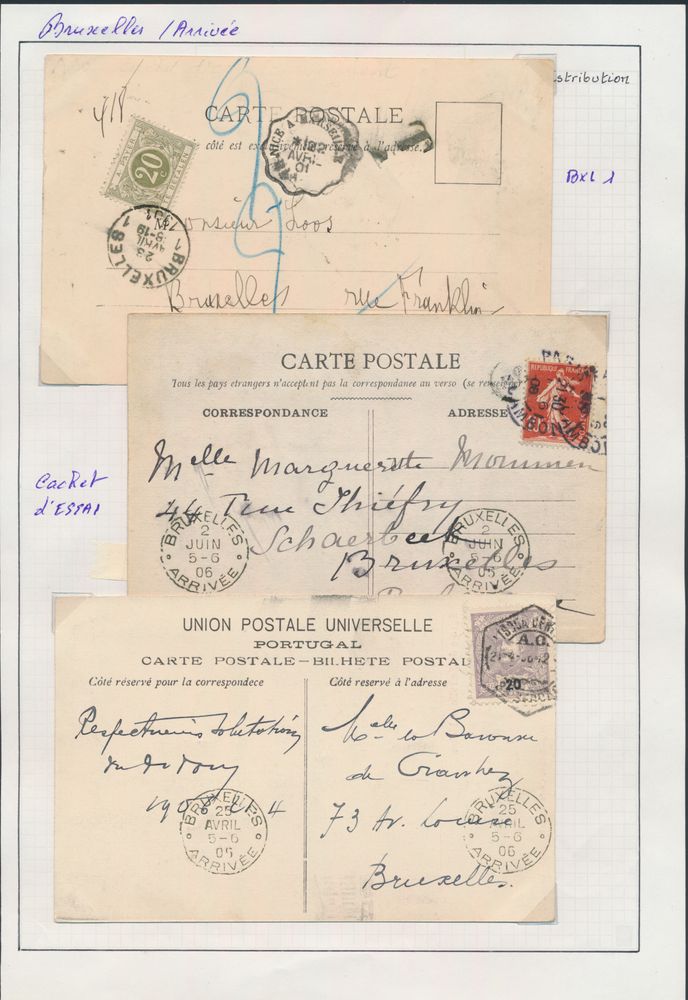 Bruxelles / Arrivée
stribution
418
CARTE POSTALE
côté est exclusivement réservé à l'adresse.
T
A PAYER
20
TE BETALEN
NICE A MARSEILLE
AVRIL
01
BXL 1
Monsieur Loos
1 BRUXELLES 1
23
AVRIL
8-19
Bruxelles rue Franklin
CARTE POSTALE
Tous les pays étrangers n'acceptent pas la correspondance au verso (se renseigner
REPUBLIQUE FRANC
CORRESPONDANCE
ADRESSE
Melle Marguerite Mommen
44 Rue Thiéfry
Schaerbeek
Bruxelles
Cachet
d'ESSAI
BRUXELLES
2
JUIN
5-6
06
ARRIVÉE
BRUXELLES
2
JUIN
5-6
06
ARRIVÉE
UNION POSTALE UNIVERSELLE
PORTUGAL
CARTE POSTALE–BILHETE POSTAL
A.C.
20
Côté réservé pour la correspondece
Côté reservé à l'adresse
Respectueuses
Melle la Baronne
de Crawhez
1906
4
73 Av. Louise
Bruxelles.
BRUXELLES
25
AVRIL
5-6
06
ARRIVÉE
BRUXELLES
25
AVRIL
5-6
06
ARRIVÉE